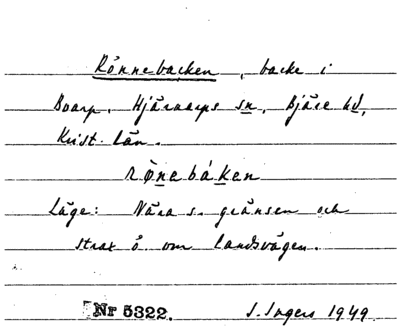 Rönnebacken, backe i
Boarp, Hjärnarps sn, Bjäre hd,
Krist. län.
rønebàken
Läge: Nära s. gränsen och
strax ö om landsvägen.
Nr 5322. I. Ingers 1949